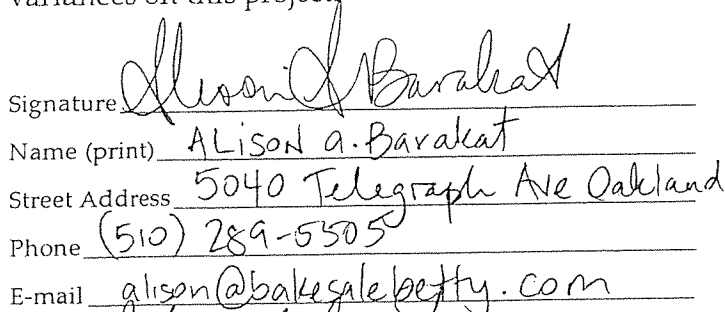 variances on this project
Signature Alison A Barakat
Name (print) ALiSON a. Barakat
Street Address 5040 Telegraph Ave Oakland
Phone (510) 289-5505
E-mail alison@bakesalebetty.com